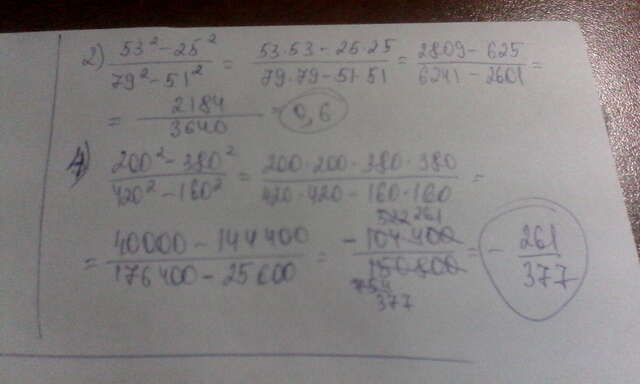 2) 53² - 25² / 79² - 51² = 53·53 - 25·25 / 79·79 - 51·51 = 2809 - 625 / 6241 - 2601 =
= 2184 / 3640 = 0,6
4) 200² - 380² / 420² - 160² = 200·200 - 380·380 / 420·420 - 160·160 =
= 40000 - 144400 / 176400 - 25600 = - 104400 / 150800 = - 261 / 377
522 261
754
377